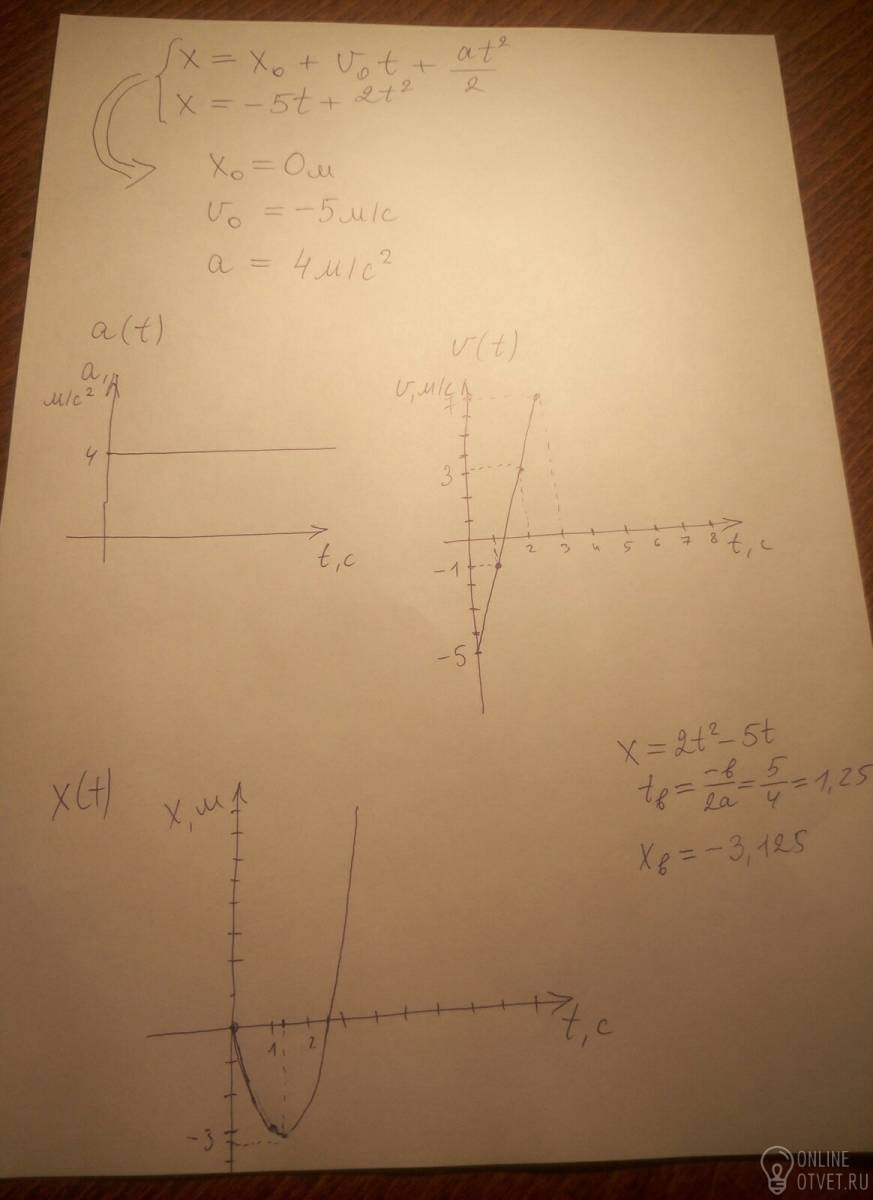 x = x₀ + v₀t + at²/2
x = -5t + 2t²
x₀ = 0м
v₀ = -5м/с
a = 4м/с²
a(t)
a, м/с²
4
t, с
v(t)
v, м/с
7
3
-1
-5
2 3 4 5 6 7 8 t, с
x = 2t² - 5t
tв = -в/2a = 5/4 = 1,25
xв = -3,125
x(t)
x, м
1 2
t, с
-3
ONLINE
OTVET.RU